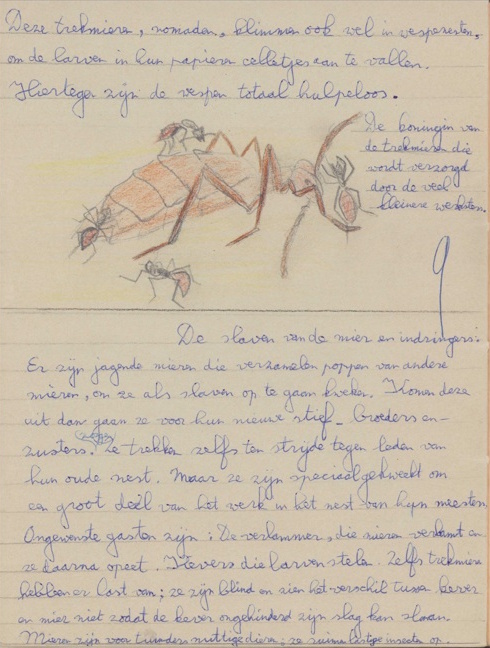 Deze trekmieren, nomaden, klimmen ook wel in wespenesten,
om de larven in hun papieren celletjes aan te vallen.
Hiertegen zijn de wespen totaal hulpeloos.
De koningin van
de trekmieren die
wordt verzorgd
door de veel
kleinere werksters.
De slaven van de mier en indringers:
Er zijn jagende mieren die verzamelen poppen van andere
mieren, om ze als slaven op te gaan kweken. Komen deze
uit dan gaan ze voor hun nieuwe stief-broeders en-
zusters. Ze trekken zelfs ten strijde tegen leden van
hun oude nest. Maar ze zijn speciaal gekweekt om
een groot deel van het werk in het nest van hun meesters
Ongewenste gasten zijn: De verlammer, die mieren verlamt en
ze daarna opeet. Kevers die larven stelen. Zelfs trekmieren
hebben er last van; ze zijn blind en zien het verschil tussen kever
en mier niet zodat de kever ongehinderd zijn slag kan slaan.
Mieren zijn voor tuinders nuttige dieren; ze ruimen lastige insecten op.